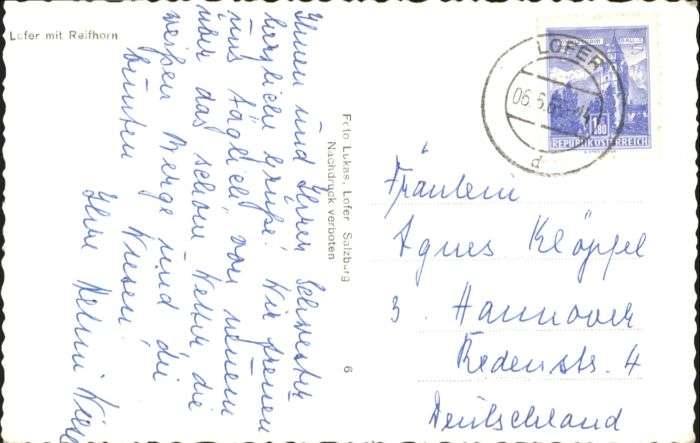 Lofer mit Reifhorn
Ihnen und Ihrer Schwester
herzlichen Grüße! Wir freuen
uns täglich von neuem
über das schöne Wetter, die
weißen Berge und die
bunten Wiesen!
Ihre
Foto Lukas, Lofer Salzburg
Nachdruck verboten
6
LOFER
06.5.6
d
1.80
REPUBLIK ÖSTERREICH
Fräulein
Agnes Klöppel
3 Hannover
Redenstr. 4
Deutschland